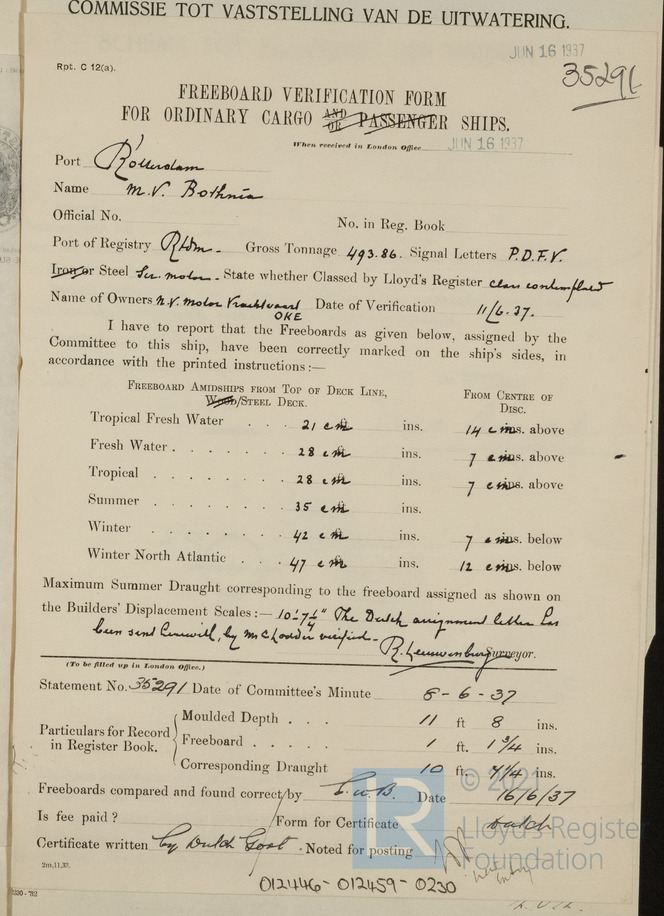 COMMISSIE TOT VASTSTELLING VAN DE UITWATERING.
JUN 16 1937
Rpt. C 12(a).
35291
FREEBOARD VERIFICATION FORM
FOR ORDINARY CARGO AND OR PASSENGER SHIPS.
When received in London Office JUN 16 1937
Port Rotterdam
Name M.V. Bothnia
Official No. No. in Reg. Book
Port of Registry Rtdm. Gross Tonnage 493.86. Signal Letters P.D.F.V.
Iron or Steel Scr. motor. State whether Classed by Lloyd's Register class contemplated
Name of Owners N.V. Motor Vrachtvaart OKE Date of Verification 11/6.37.
I have to report that the Freeboards as given below, assigned by the
Committee to this ship, have been correctly marked on the ship's sides, in
accordance with the printed instructions:—
FREEBOARD AMIDSHIPS FROM TOP OF DECK LINE, WOOD/STEEL DECK.
FROM CENTRE OF DISC.
Tropical Fresh Water . . . 21 cm ins. 14 cms. above
Fresh Water . . . . . . . 28 cm ins. 7 cms. above
Tropical . . . . . . . 28 cm ins. 7 cms. above
Summer . . . . . . . 35 cm ins.
Winter . . . . . . . 42 cm ins. 7 cms. below
Winter North Atlantic . . . 47 cm ins. 12 cms. below
Maximum Summer Draught corresponding to the freeboard assigned as shown on
the Builders' Displacement Scales:— 10'-7¼" The Dutch assignment letter has
been sent herewith, by verified-
R. Leeuwenburg Surveyor.
(To be filled up in London Office.)
Statement No. 35291 Date of Committee's Minute 8-6-37
Particulars for Record in Register Book.
Moulded Depth . . . 11 ft 8 ins.
Freeboard . . . . . 1 ft. 1 3/4 ins.
Corresponding Draught 10 ft. 7 1/4 ins.
Freeboards compared and found correct by Date 16/6/37
Is fee paid ? Form for Certificate Dutch
Certificate written by Dutch Govt. Noted for posting
2m,11,37.
012446-012459-0230
© 2021
LR
Lloyd's Register
Foundation